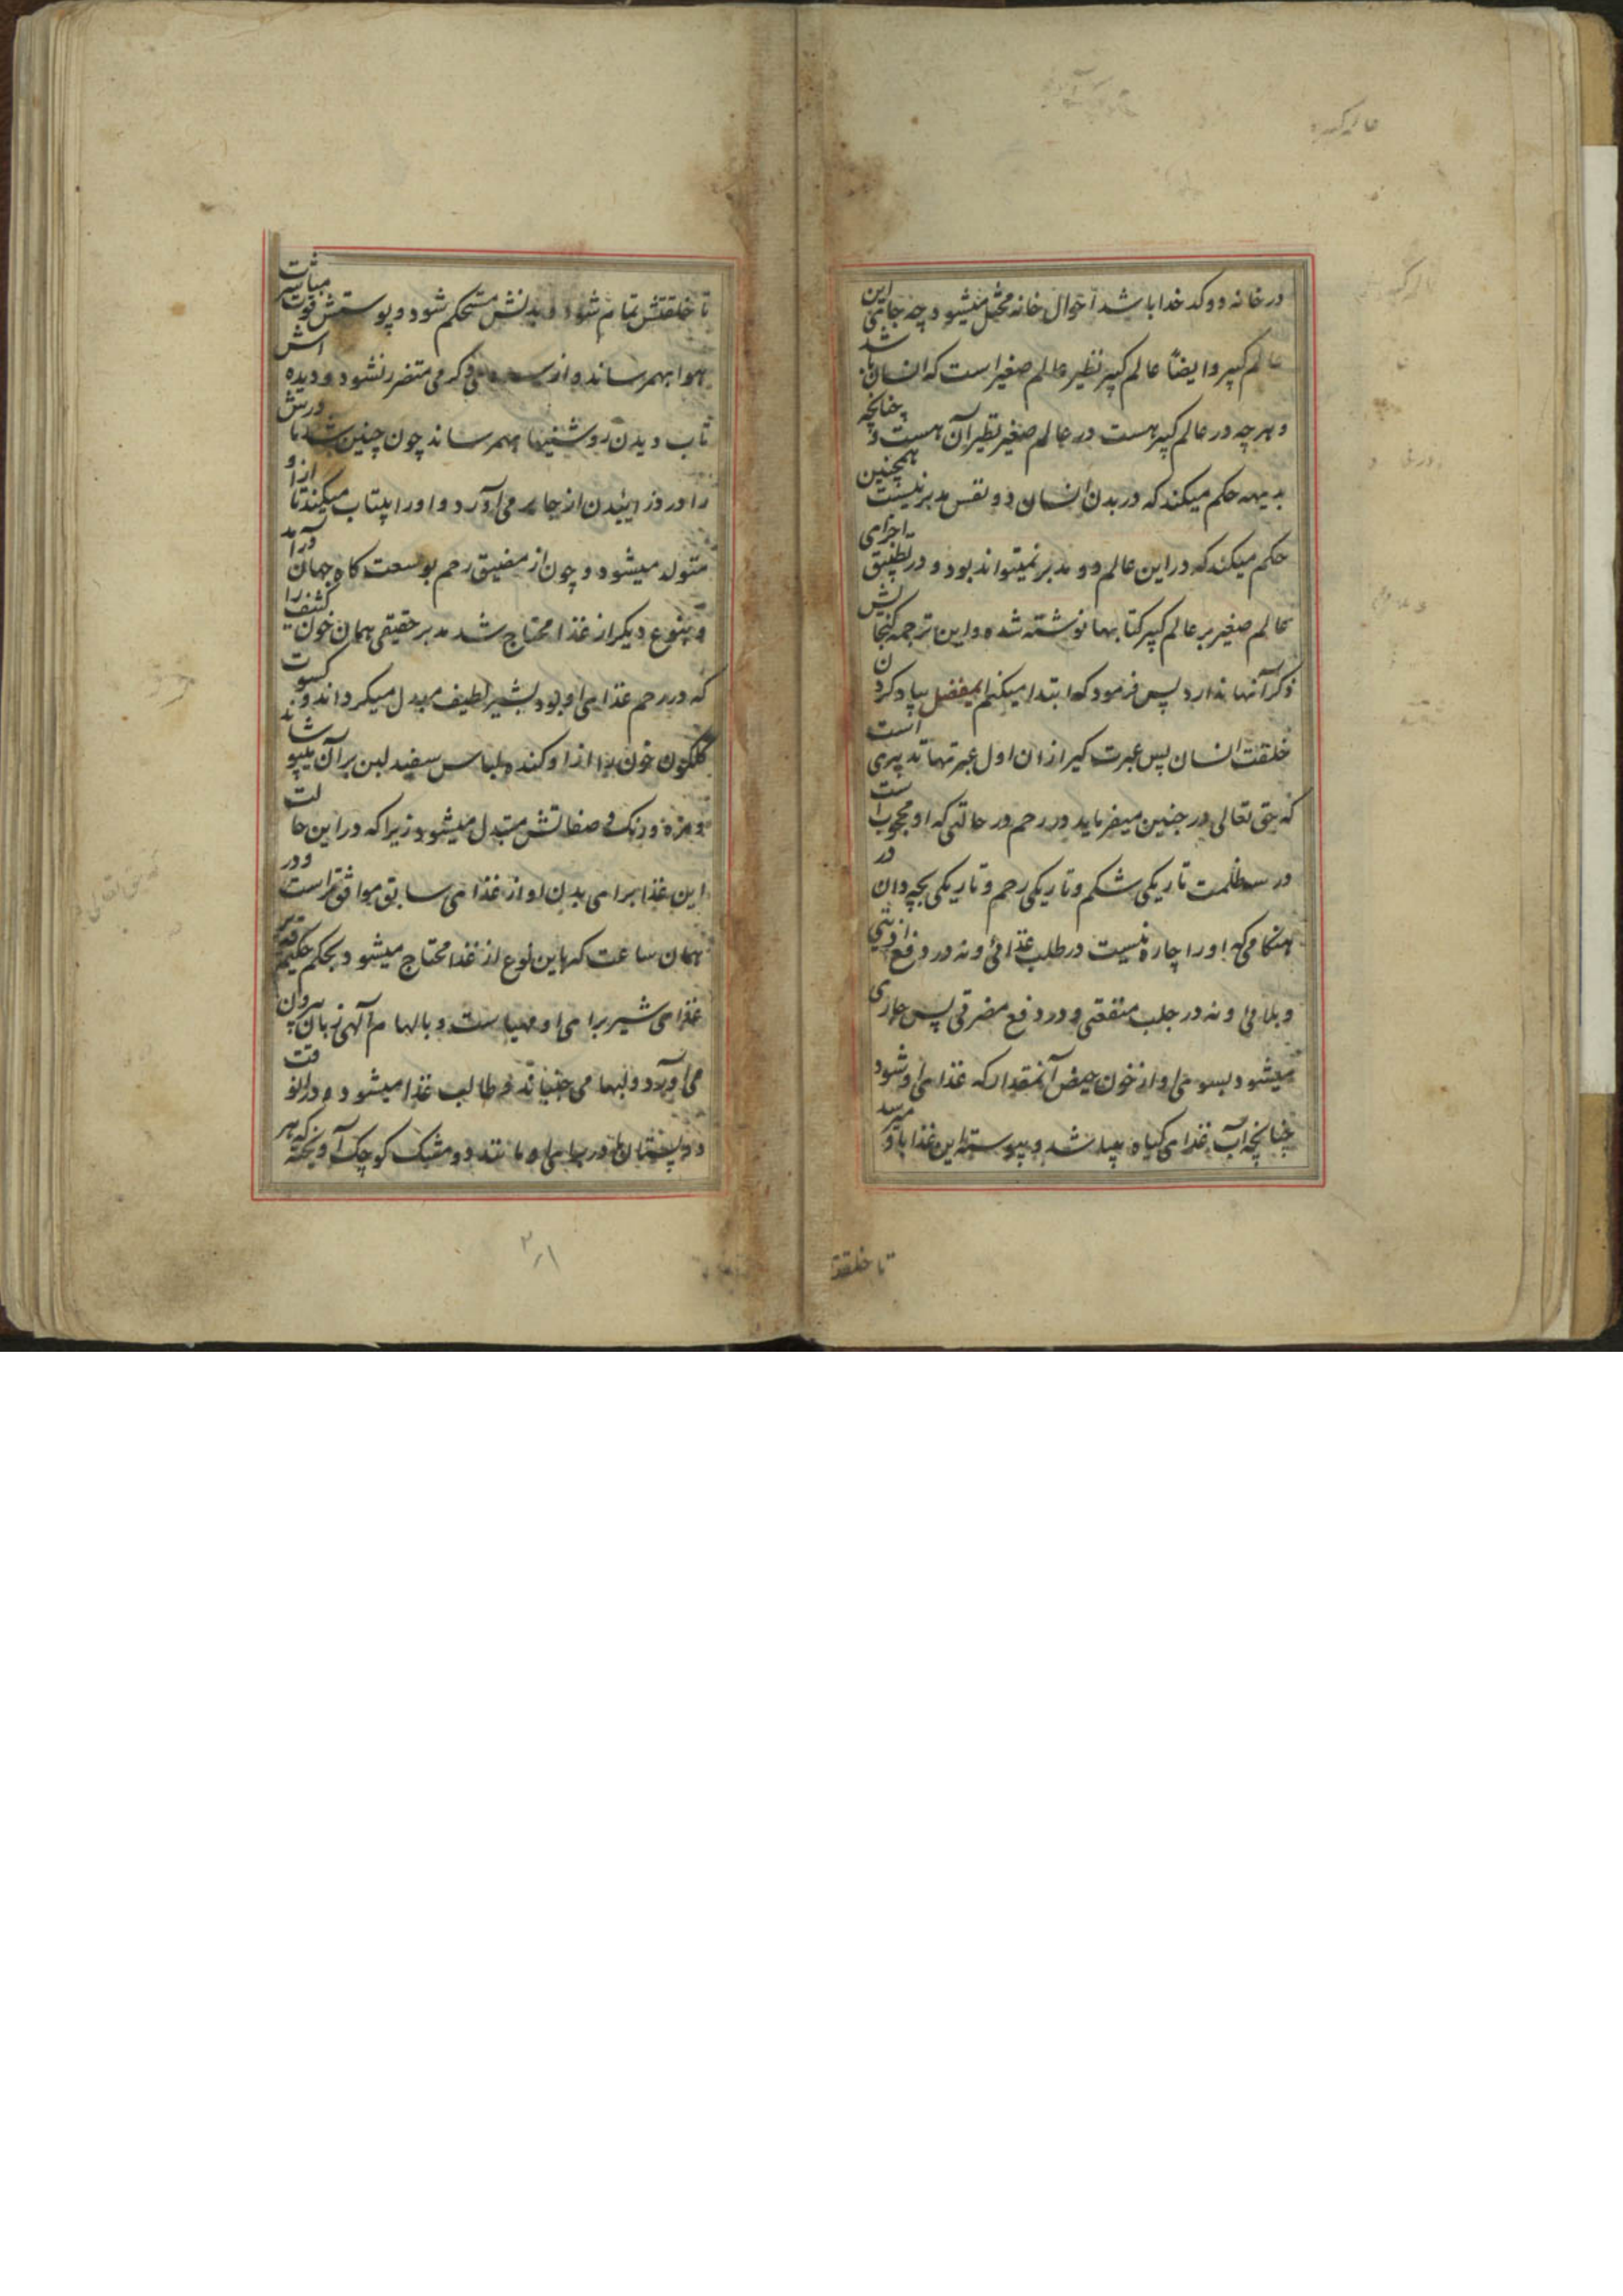 در خانه دو کدخدا باشد احوال خانه مختل میشود چه جای این
عالم کبیر و ایضاً عالم کبیر نظیر عالم صغیر است که انسان باشد
و هر چه در عالم کبیر هست در عالم صغیر نظیر آن هست و چنانچه
بدیهه حکم میکند که در بدن انسان دو نفس مدبر نیست همچنین
حکم میکند که در این عالم دو مدبر نمیتواند بود و در تطبیق اجزای
عالم صغیر بر عالم کبیر کتابها نوشته شده و این ترجمه گنجایش
ذکر آنها ندارد پس فرمود که ابتدا میکنم ایمفضل بیاد کردن
خلقت انسان پس عبرت گیر از ان اول عبرتها تدبیری است
که حق تعالی در جنین میفرماید در رحم در حالتی که او محجوب است
در سه ظلمت تاریکی شکم و تاریکی رحم و تاریکی بچه دان در
هنگامی که او را چاره نیست در طلب غذائی و نه در دفع اذیتی
و بلائی و نه در جلب منفعتی و در دفع مضرتی پس جاری
میشود بسوی او از خون حیض آنمقدار که غذای او شود
چنانچه آب غذای گیاه میباشد و پیوسته این غذا باو میرسد
تا خلقت
تا خلقتش تمام شود و بدنش مستحکم شود و پوستش قوت مباشرت
هوا بهمرساند و از سردی و گرمی متضرر نشود و دیده اش
تاب دیدن روشنیها بهمرساند چون چنین شد مادرش
را درد زائیدن از جا بر می آورد و او را بیتاب میکند تا از او
متولد میشود و چون از مضیق رحم بوسعت گاه جهان درآمد
و بنوع دیگر از غذا محتاج شد مدبر حقیقی همان خون کثیف را
که در رحم غذای او بود بشیر لطیف مبدل میگرداند و کسوت
گلگون خون را از او کنده بلباس سفید لبن بر آن میپوشاند
و مزه و رنگ و صفاتش متبدل میشود زیرا که در این حالت
این غذا برای بدن او از غذای سابق موافق تر است و در
همان ساعت که باین نوع از غذا محتاج میشود بحکم حکیم قدیر
غذای شیر برای او مهیا است و بالهام آلهی زبان بیرون
می آورد و لبها می جنباند و طالب غذا میشود و در انوقت
دو پستان مادر برای او مانند دو مشک کوچک آویخته که هر